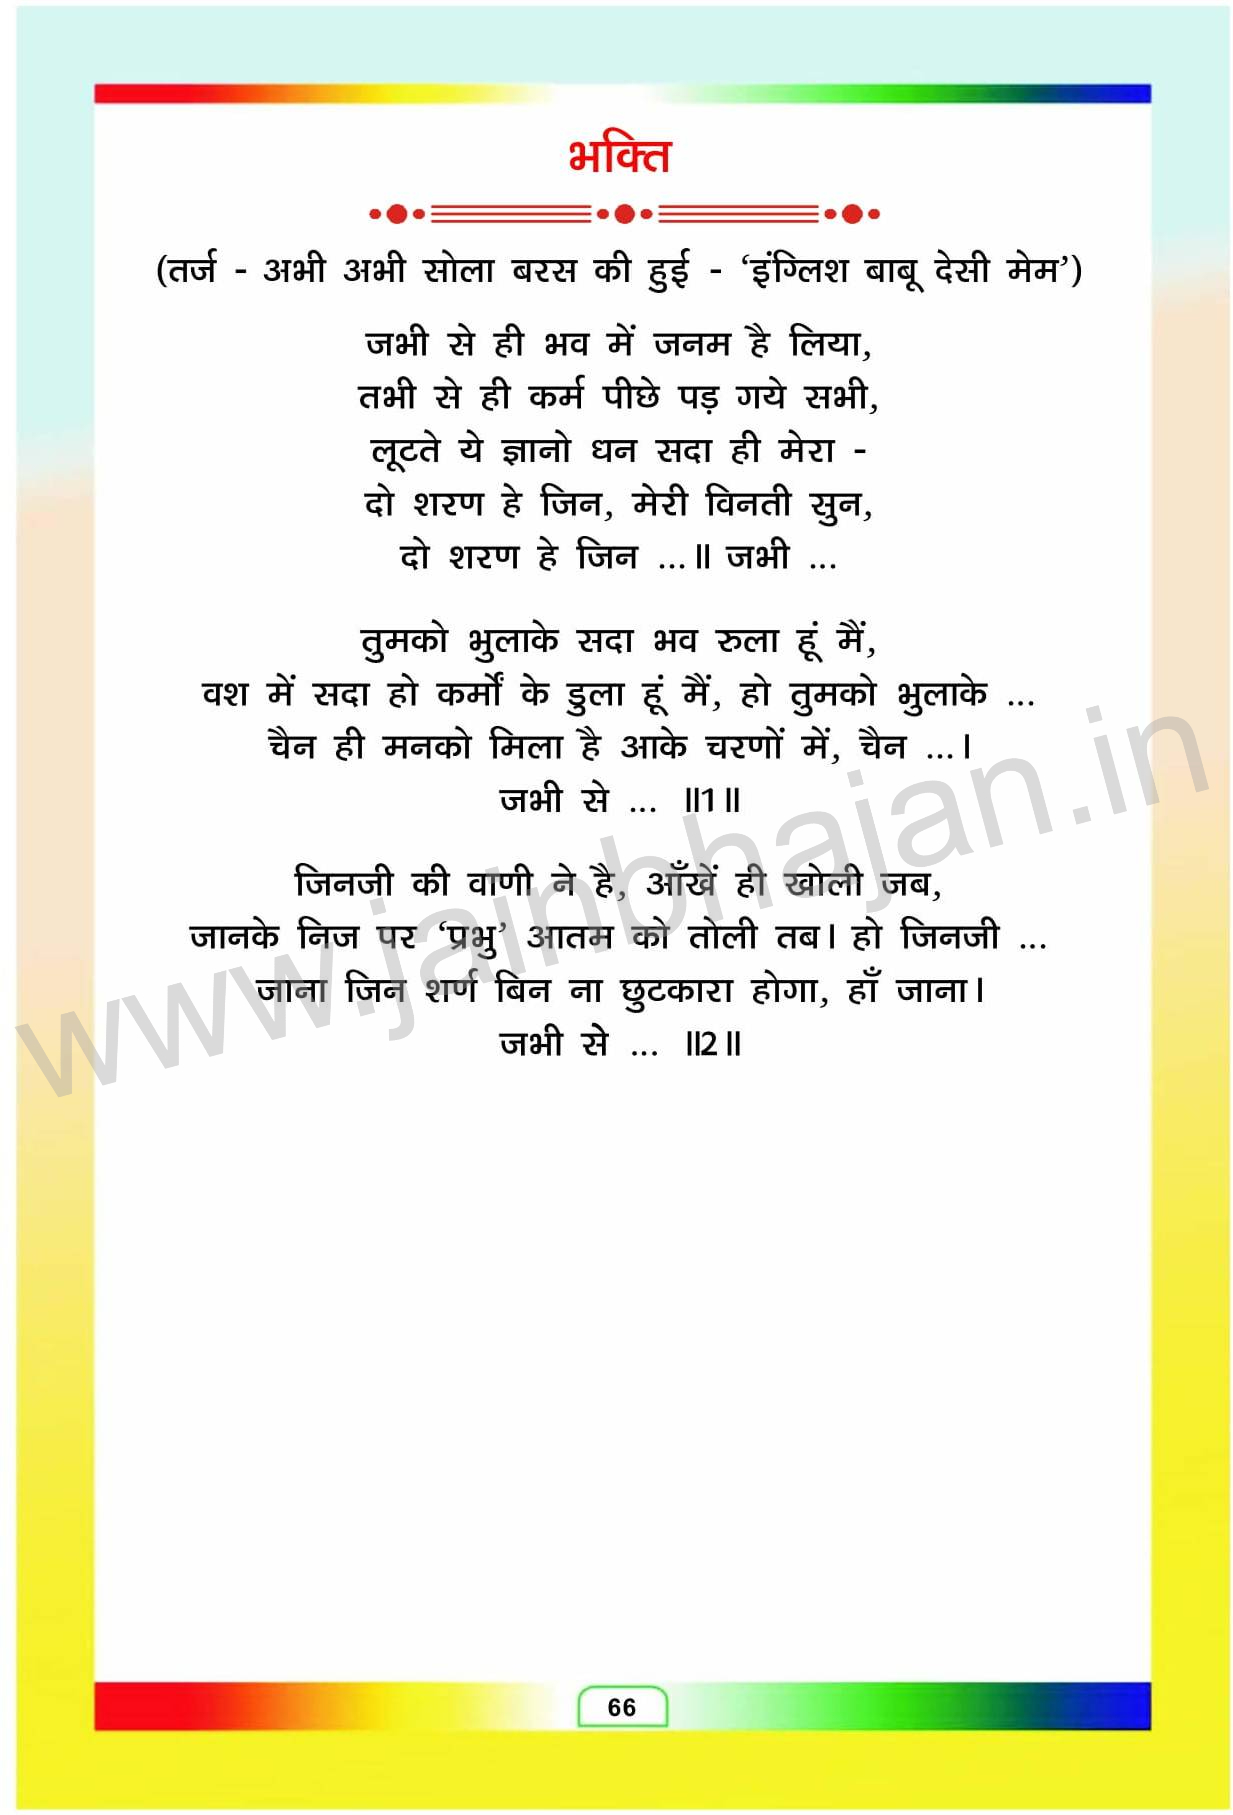 भक्ति
(तर्ज - अभी अभी सोला बरस की हुई - ‘इंग्लिश बाबू देसी मेम’)
जभी से ही भव में जनम है लिया,
तभी से ही कर्म पीछे पड़ गये सभी,
लूटते ये ज्ञानो धन सदा ही मेरा -
दो शरण हे जिन, मेरी विनती सुन,
दो शरण हे जिन ...॥ जभी ...
तुमको भुलाके सदा भव रुला हूं मैं,
वश में सदा हो कर्मों के डुला हूं मैं, हो तुमको भुलाके ...
चैन ही मनको मिला है आके चरणों में, चैन ...।
जभी से ... ॥1॥
जिनजी की वाणी ने है, आँखें ही खोली जब,
जानके निज पर ‘प्रभु’ आतम को तोली तब। हो जिनजी ...
जाना जिन शर्ण बिन ना छुटकारा होगा, हाँ जाना।
जभी से ... ॥2॥
www.jainbhajan.in
66